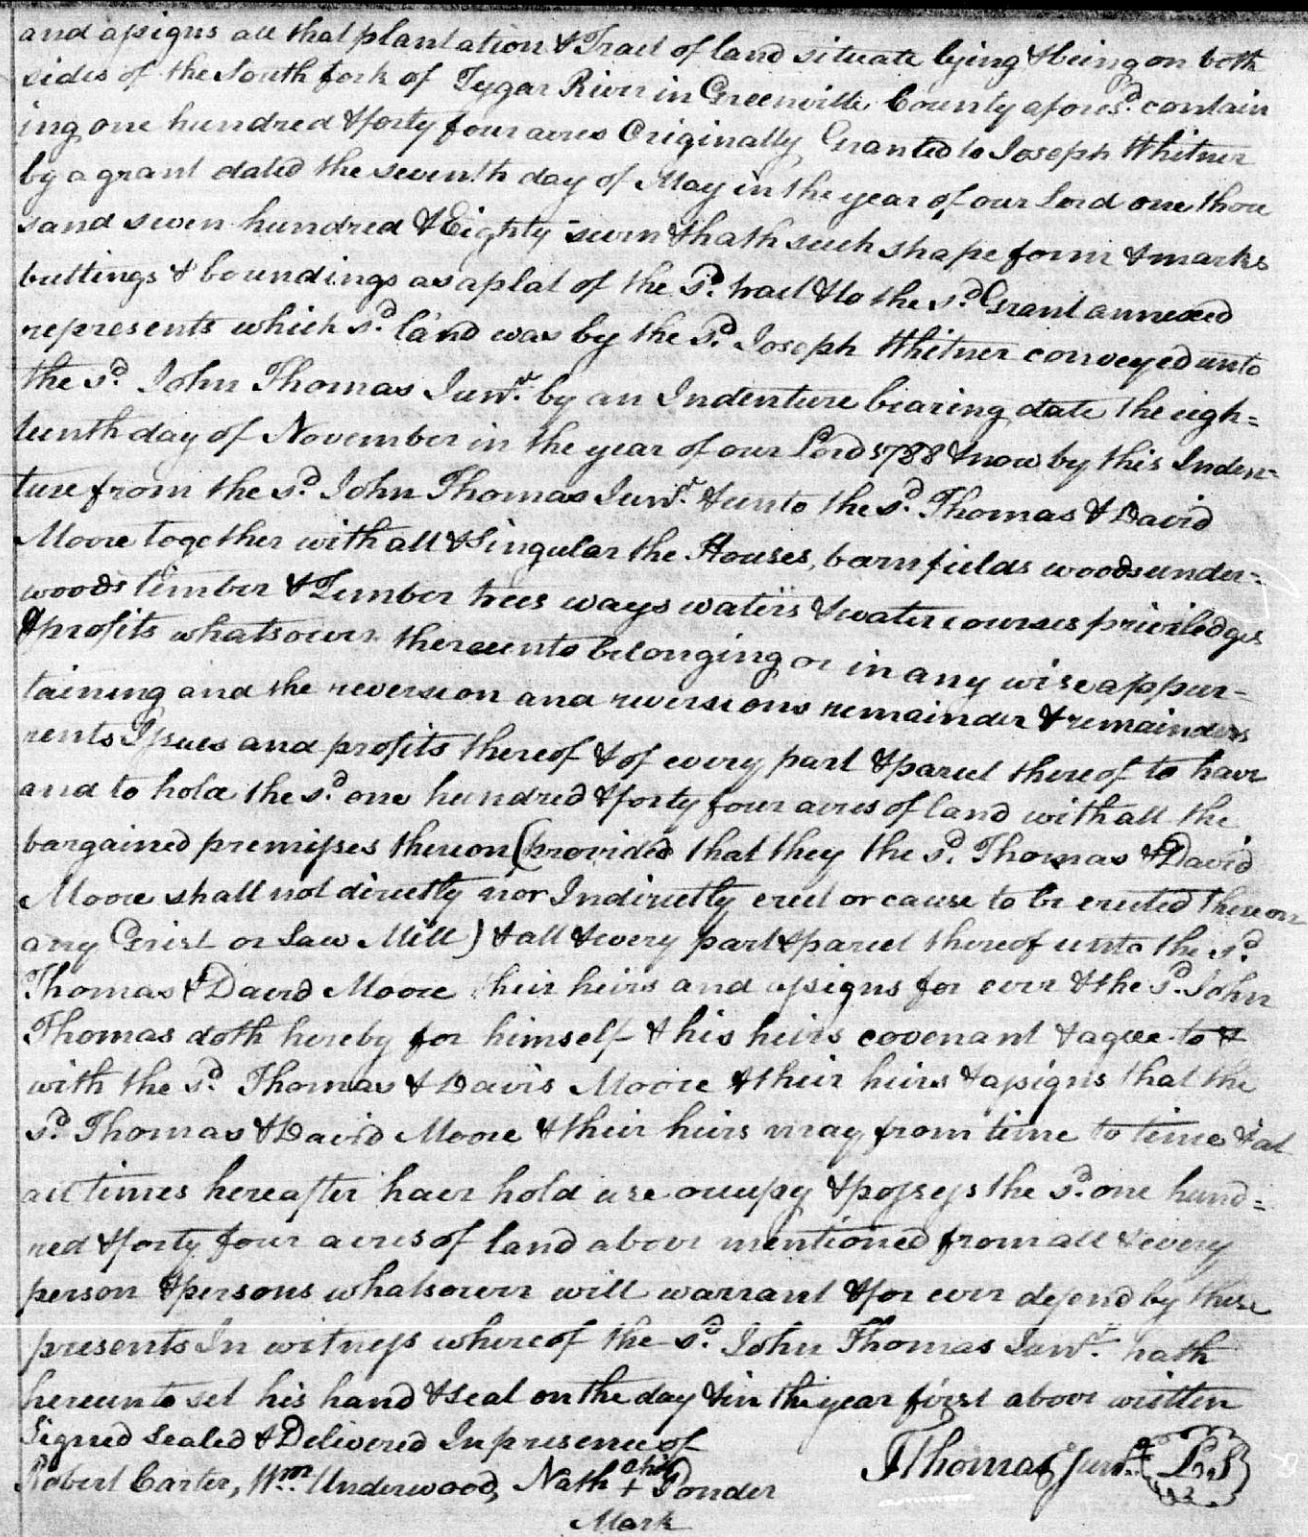 and assigns all that plantation & Tract of land situate lying & being on both
sides of the South fork of Tygar River in Greenville County afores.d contain
ing one hundred & forty four acres Originally Granted to Joseph Whitner
by a grant dated the seventh day of May in the year of our Lord one thou
sand seven hundred & Eighty seven & hath such shape form & marks
buttings & boundings as a plat of the s.d tract & to the s.d Grant annexed
represents which s.d land was by the s.d Joseph Whitner conveyed unto
the s.d John Thomas Jun.r by an Indenture bearing date the eigh=
teenth day of November in the year of our Lord 1788 & now by this Inden=
ture from the s.d John Thomas Jun.r & unto the s.d Thomas & David
Moore together with all & Singular the Houses, barn fields woods under=
woods timber & Timber trees ways waters & water courses priviledges
& profits whatsoever thereunto belonging or in any wise appur-
taining and the reversion and reversions remainder & remainders
rents Issues and profits thereof & of every part & parcel thereof to have
and to hold the s.d one hundred & forty four acres of land with all the
bargained premisses thereon (provided that they the s.d Thomas & David
Moore shall not directly nor Indirectly erect or cause to be erected thereon
any Grist or Saw Mill) & all & every part & parcel thereof unto the s.d
Thomas & David Moore their heirs and assigns for ever & the s.d John
Thomas doth hereby for himself & his heirs covenant & agree to &
with the s.d Thomas & Davis Moore & their heirs & assigns that the
s.d Thomas & David Moore & their heirs may from time to time & at
all times hereafter haer hold use occupy & possess the s.d one hund=
red & forty four acres of land above mentioned from all & every
person & persons whatsoever will warrant & for ever defend by these
presents In witness whereof the s.d John Thomas Jun.r hath
hereunto set his hand & seal on the day & in the year first above written
Signed Sealed & Delivered In presence of
Robert Carter, W.m Underwood, Nath + Ponder JThomas Jun.r (L.S)
Mark